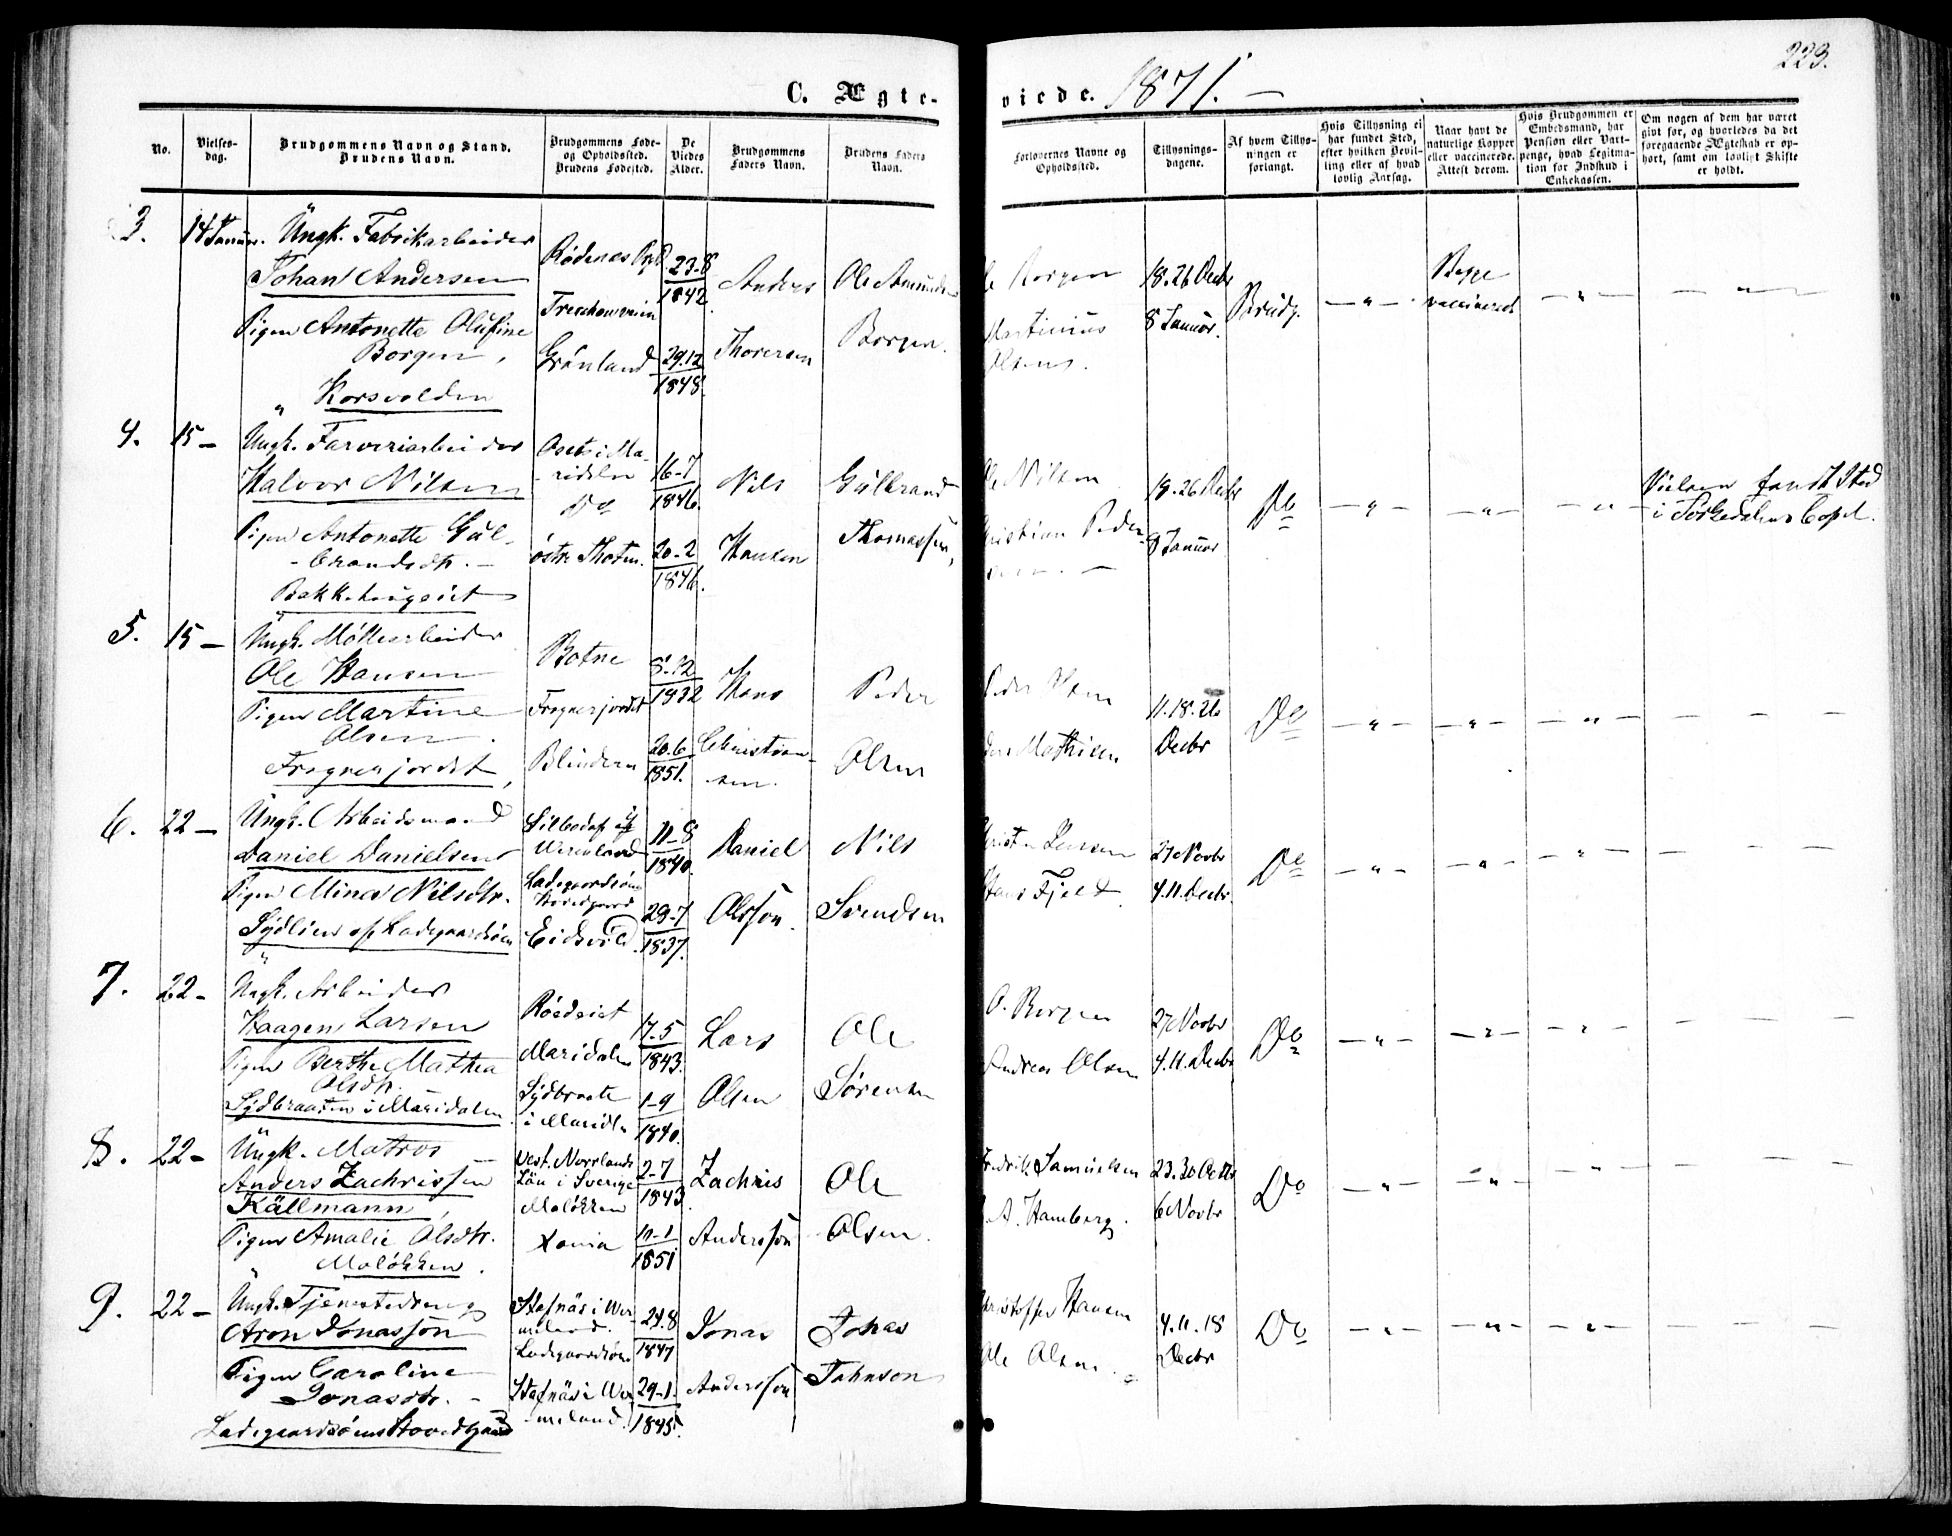 223.
C. Ægte-
viede. 1871. —
No.
Vielses-
dag.
Brudgommens Navn og Stand.
Brudens Navn.
Brudgommens Føde-
og Opholdssted.
Brudens Fødested.
De
Viedes
Alder.
Brudgommens
Faders Navn.
Brudens Faders
Navn.
Forlovernes Navne og
Opholdssted.
Tillysnings-
dagene.
Af hvem Tillys-
ningen er
forlangt.
Hvis Tillysning ei
har fundet Sted,
efter hvilken Bevil-
ling eller af hvad
lovlig Aarsag.
Naar havt de
naturlige Kopper
eller vaccinerede.
Attest derom.
Hvis Brudgommen er
Embedsmand, har
Pension eller Vart-
penge, hvad Legitma-
tion for Indskud i
Enkekassen.
Om nogen af dem har været
givt før, og hvorledes da det
foregaaende Ægteskab er op-
hørt, samt om lovligt Skifte
er holdt.
3. 14 Januar. Ungk. Fabrikarbeider
Johan Andersen
Pigen Antonette Olufine
Borgen,
" Korsvolden
Rødenæs
Grønland
23-8
1842
29.12
1848.
Anders
Thoresen
Ole Amunds
Borgen.
Borgen
Martinius
Olsen.
18. 26 Decbr
8 Januar.
Brudg.
— " —
Begge
vaccinered
— " —
— " —
4. 15 — Ungk. Farveriarbeider
Halvor Nilsen
Pigen Antonette Gul-
brandsdtr. —
Bakkehaugeiet
Oset i Ma-
ridalen
Do
østre Thoten.
16-7
1846.
20-2
1846.
Nils
Hansen
Gulbrand
Thomassen,
Ole Nilsen
Christian Peder-
sen. —
18. 26 Decbr
8 Januar
Do
— " —
— " —
— " —
Vielsen fandt Sted
i Sørkedalens Capel.
5. 15 — Ungk. Møllearbeider
Ole Hansen
Pigen Martine
Olsen.
Frognerjordet,
Botne
Frognerjordet
Blindern
8.12
1832
20.6
1851.
Hans
Christian-
sen.
Peder
Olsen
Peder Olsen
Mathisen
11. 18. 26
Decbr
Do
— " —
— " —
— " —
6. 22 — Ungk. Arbeidsmand
Daniel Danielsen
Pigen Mina Nilsdtr.
Sydlien af Ladegaardsøen
Silbodal i
Wermland
Ladegaardsøens
Hovedgaard
Eidsvold.
11-8
1840.
29-7
1837.
Daniel
Olsson.
Nils
Svendsen
Larsen
Hans Fjeld
27 Novbr
4. 11. Decbr.
Do
— " —
— " —
— " —
7. 22 - Ungk. Arbeider
Haagen Larsen
Pigen Berthe Mathea
Olsdtr.
Sydbraaten i Maridalen
Maridalen
Sydbraate
i Maridln
17-5
1843.
1-9
1840.
Lars
Olsen
Ole
Sørensen
O. Borgen
Andreas Olsen
27 Novbr
4. 11. Decbr
Do
— " —
— " —
— " —
8. 22 - Ungk. Matros
Anders Zachrissen
Källmann,
Pigen Amalie Olsdtr.
Møløkken.
Vest. Norrlands
Län i Sverige
Møløkken
Xania
2-7
1843.
11-1
1851
Zachris
Andersson
Ole
Olsen.
Fredrik Samuelsen
A. Hamberg.
23. 30 Octbr
6 Novbr
Do
— " —
— " —
— " —
9. 22 — Ungk. Tjenestedreng
Aron Jonasson
Pigen Caroline
Jonasdtr. —
Ladegaardsøens Hovedgaard
Stafnäs i Wer-
meland.
Ladegaardsøen
Stafnäs i Wer-
meland.
24.8
1847
29-1.
1845.
Jonas
Andersson
Johas
Johnson
Christoffer Hansen
Ole Olsen
4. 11. 18
Decbr
Do
— " —
— " —
— " —